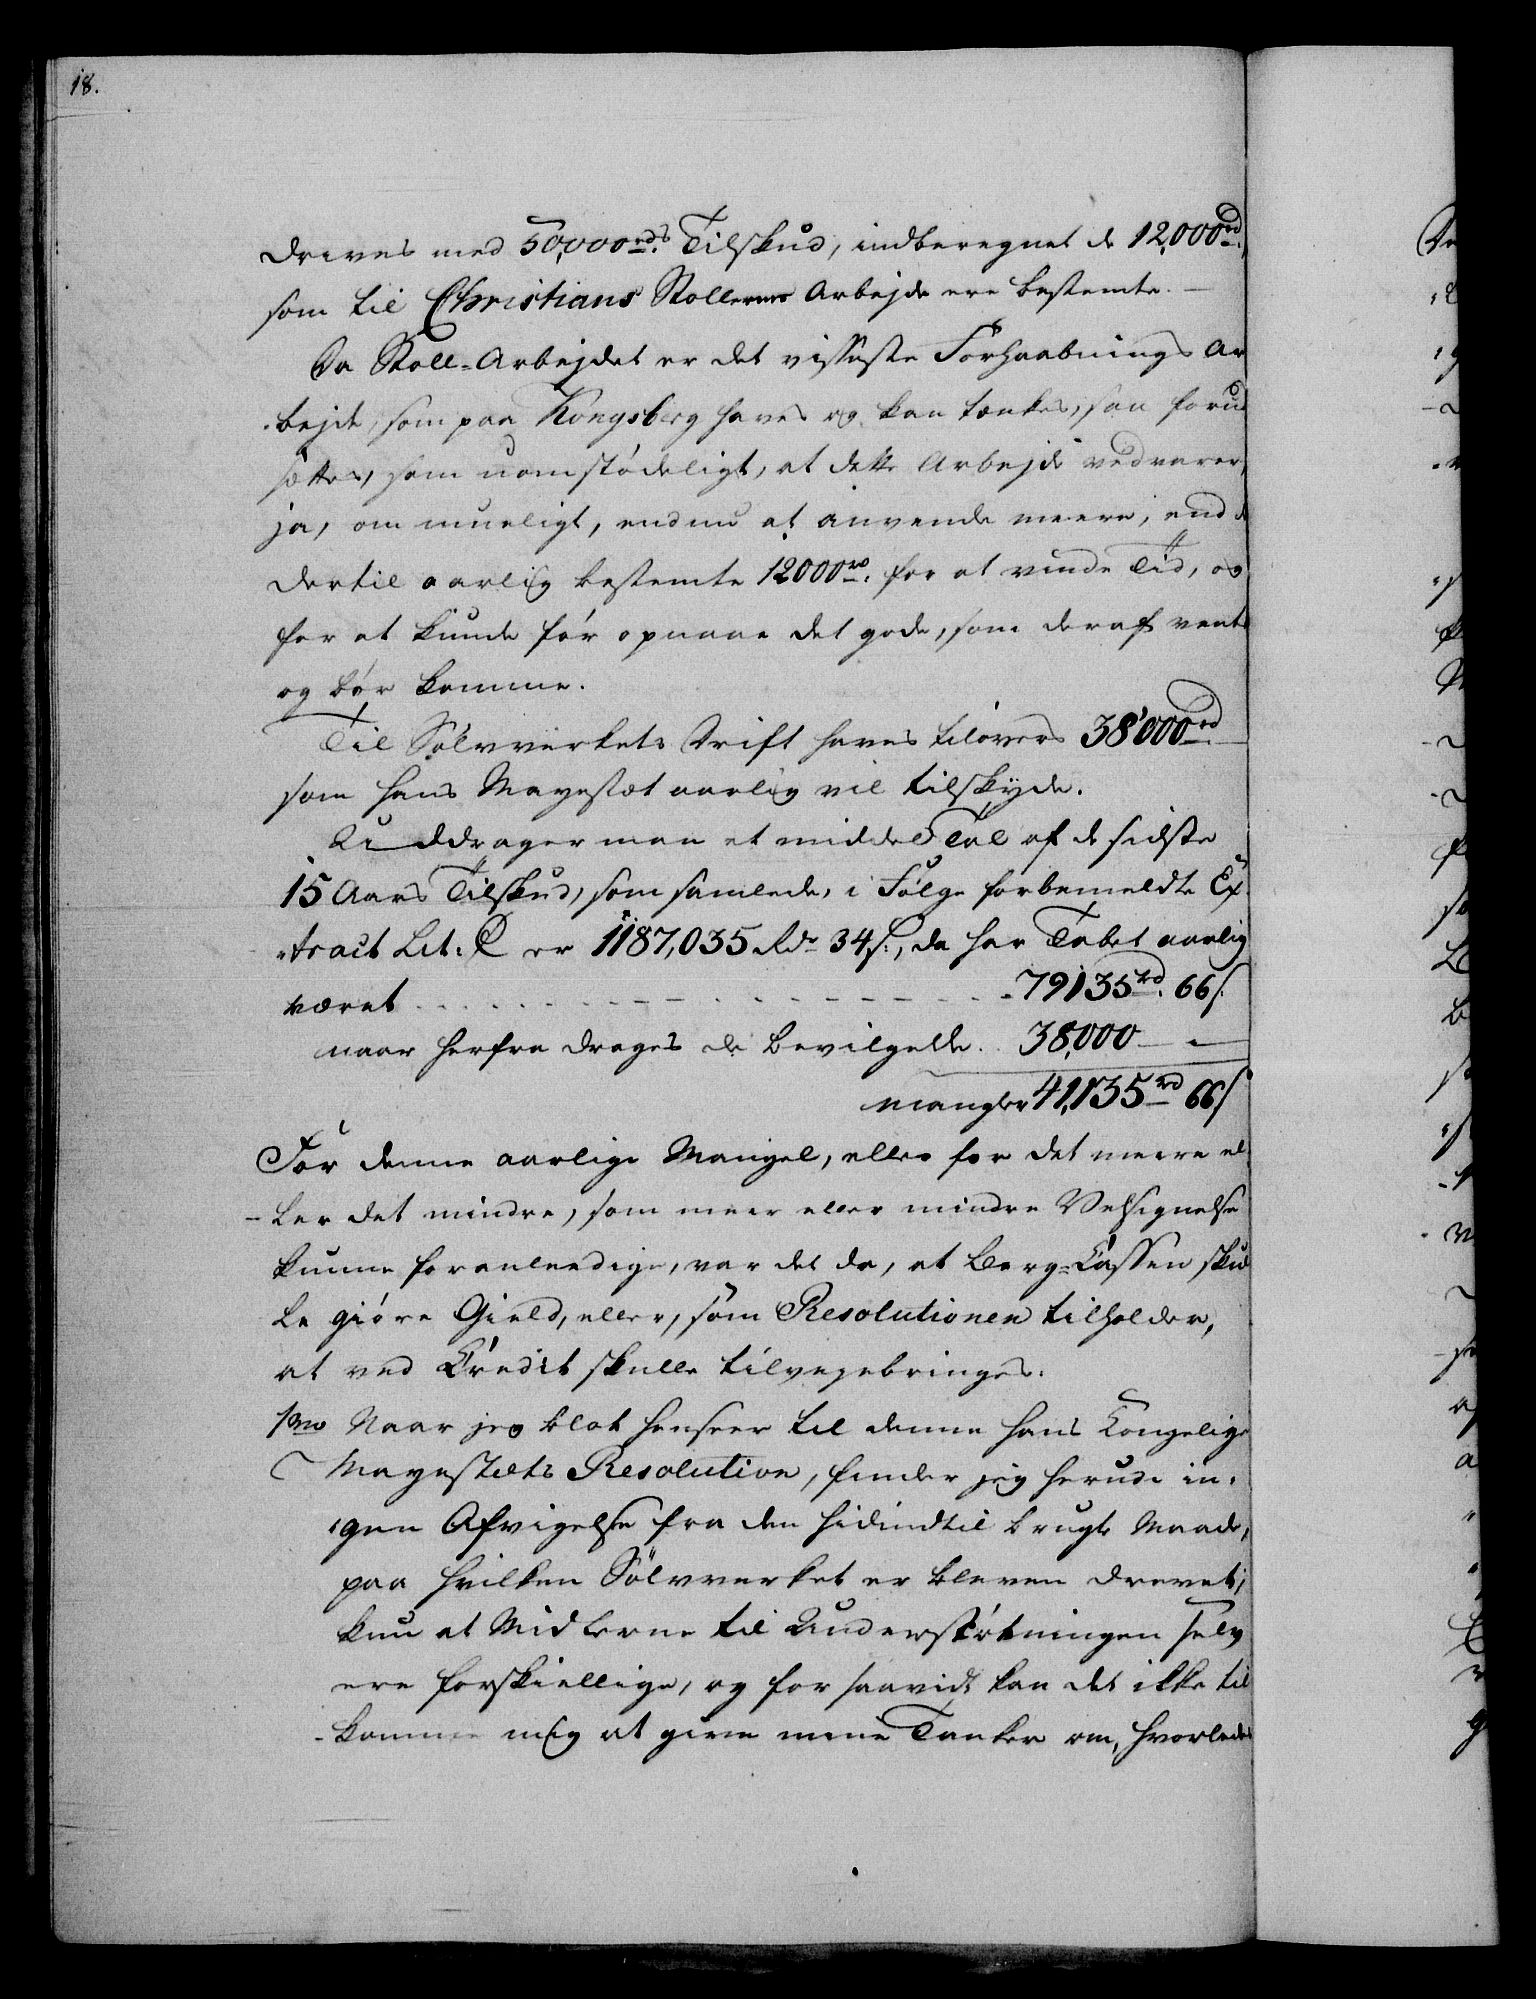 18.
drives med 50,000rds Tilskud, indberegnet de 12,000rd,
som til Christians Stollernes Arbejde ere bestemte. —
Da Stoll-Arbejdet er det visseste Forhaabnings Ar
bejde, som paa Kongsberg haves og kan tænkes, saa forud
sættes, som uomstødeligt, at dette Arbejde vedvarer,
ja, om mueligt, endnu at anvende meere, end de
dertil aarlig bestemte 12000rd. for at vinde Tid, og
for at kunde før opnaae det gode, som deraf ventes
og bør komme.
Til Sølvverkets Drift haves tilovers 38'000rd
som Hans Mayestæt aarlig vil tilskyde.
Uddrager man et middel Tal af de sidste
15 Aars Tilskud, som samlede, i Følge forbemeldte Ex
-tract Lit: C er 1187,035 Rdr 34s., da har Tabet aarlig
været . . . . . . 79135rd. 66s.
naar herfra drages de bevilgede . . 38,000 — —
mangler 41,135rd 66s
For denne aarlige Mangel, eller for det meere el
-ler det mindre, som meer eller mindre Velsignelse
kunne foranleedige, var det da, at Berg-Cassen skul
le giøre Gield, eller, som Resolutionen tilholder,
at ved Credit skulle tilvejebringes.
1mo Naar jeg blot henseer til denne Hans Kongelige
Mayestæts Resolution, finder jeg herudi in-
-gen Afvigelse fra den hidindtil brugte Maade,
paa hvilken Sølvverket er bleven drevet;
kun at Midlerne til Understøtningen selv
ere forskiellige, og for saavidt kan det ikke til
-komme mig at give mine Tanker om, hvorledes